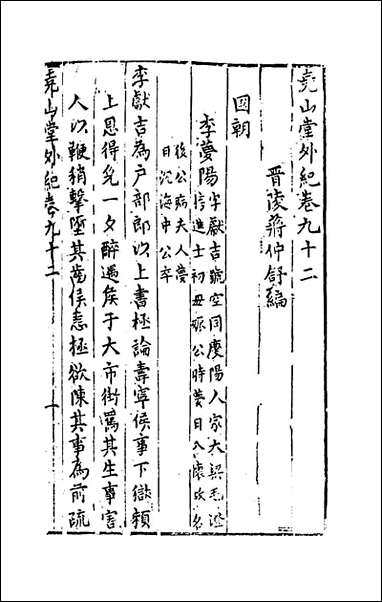 堯山堂外紀卷九十二
晋陵蔣仲舒編
國朝
李夢陽
字獻吉號空同慶陽人家大梁
進士初母孕公時夢日入懷故名
後公病夫人夢
日沉海中公卒
李獻吉為户部郎以上書極論壽寧侯事下獄賴
上恩得免一夕醉遇矦于大市街罵其生事害
人以鞭稍擊墮其齒侯恚極欲陳其事為前疏
堯山堂外紀卷九十二
一